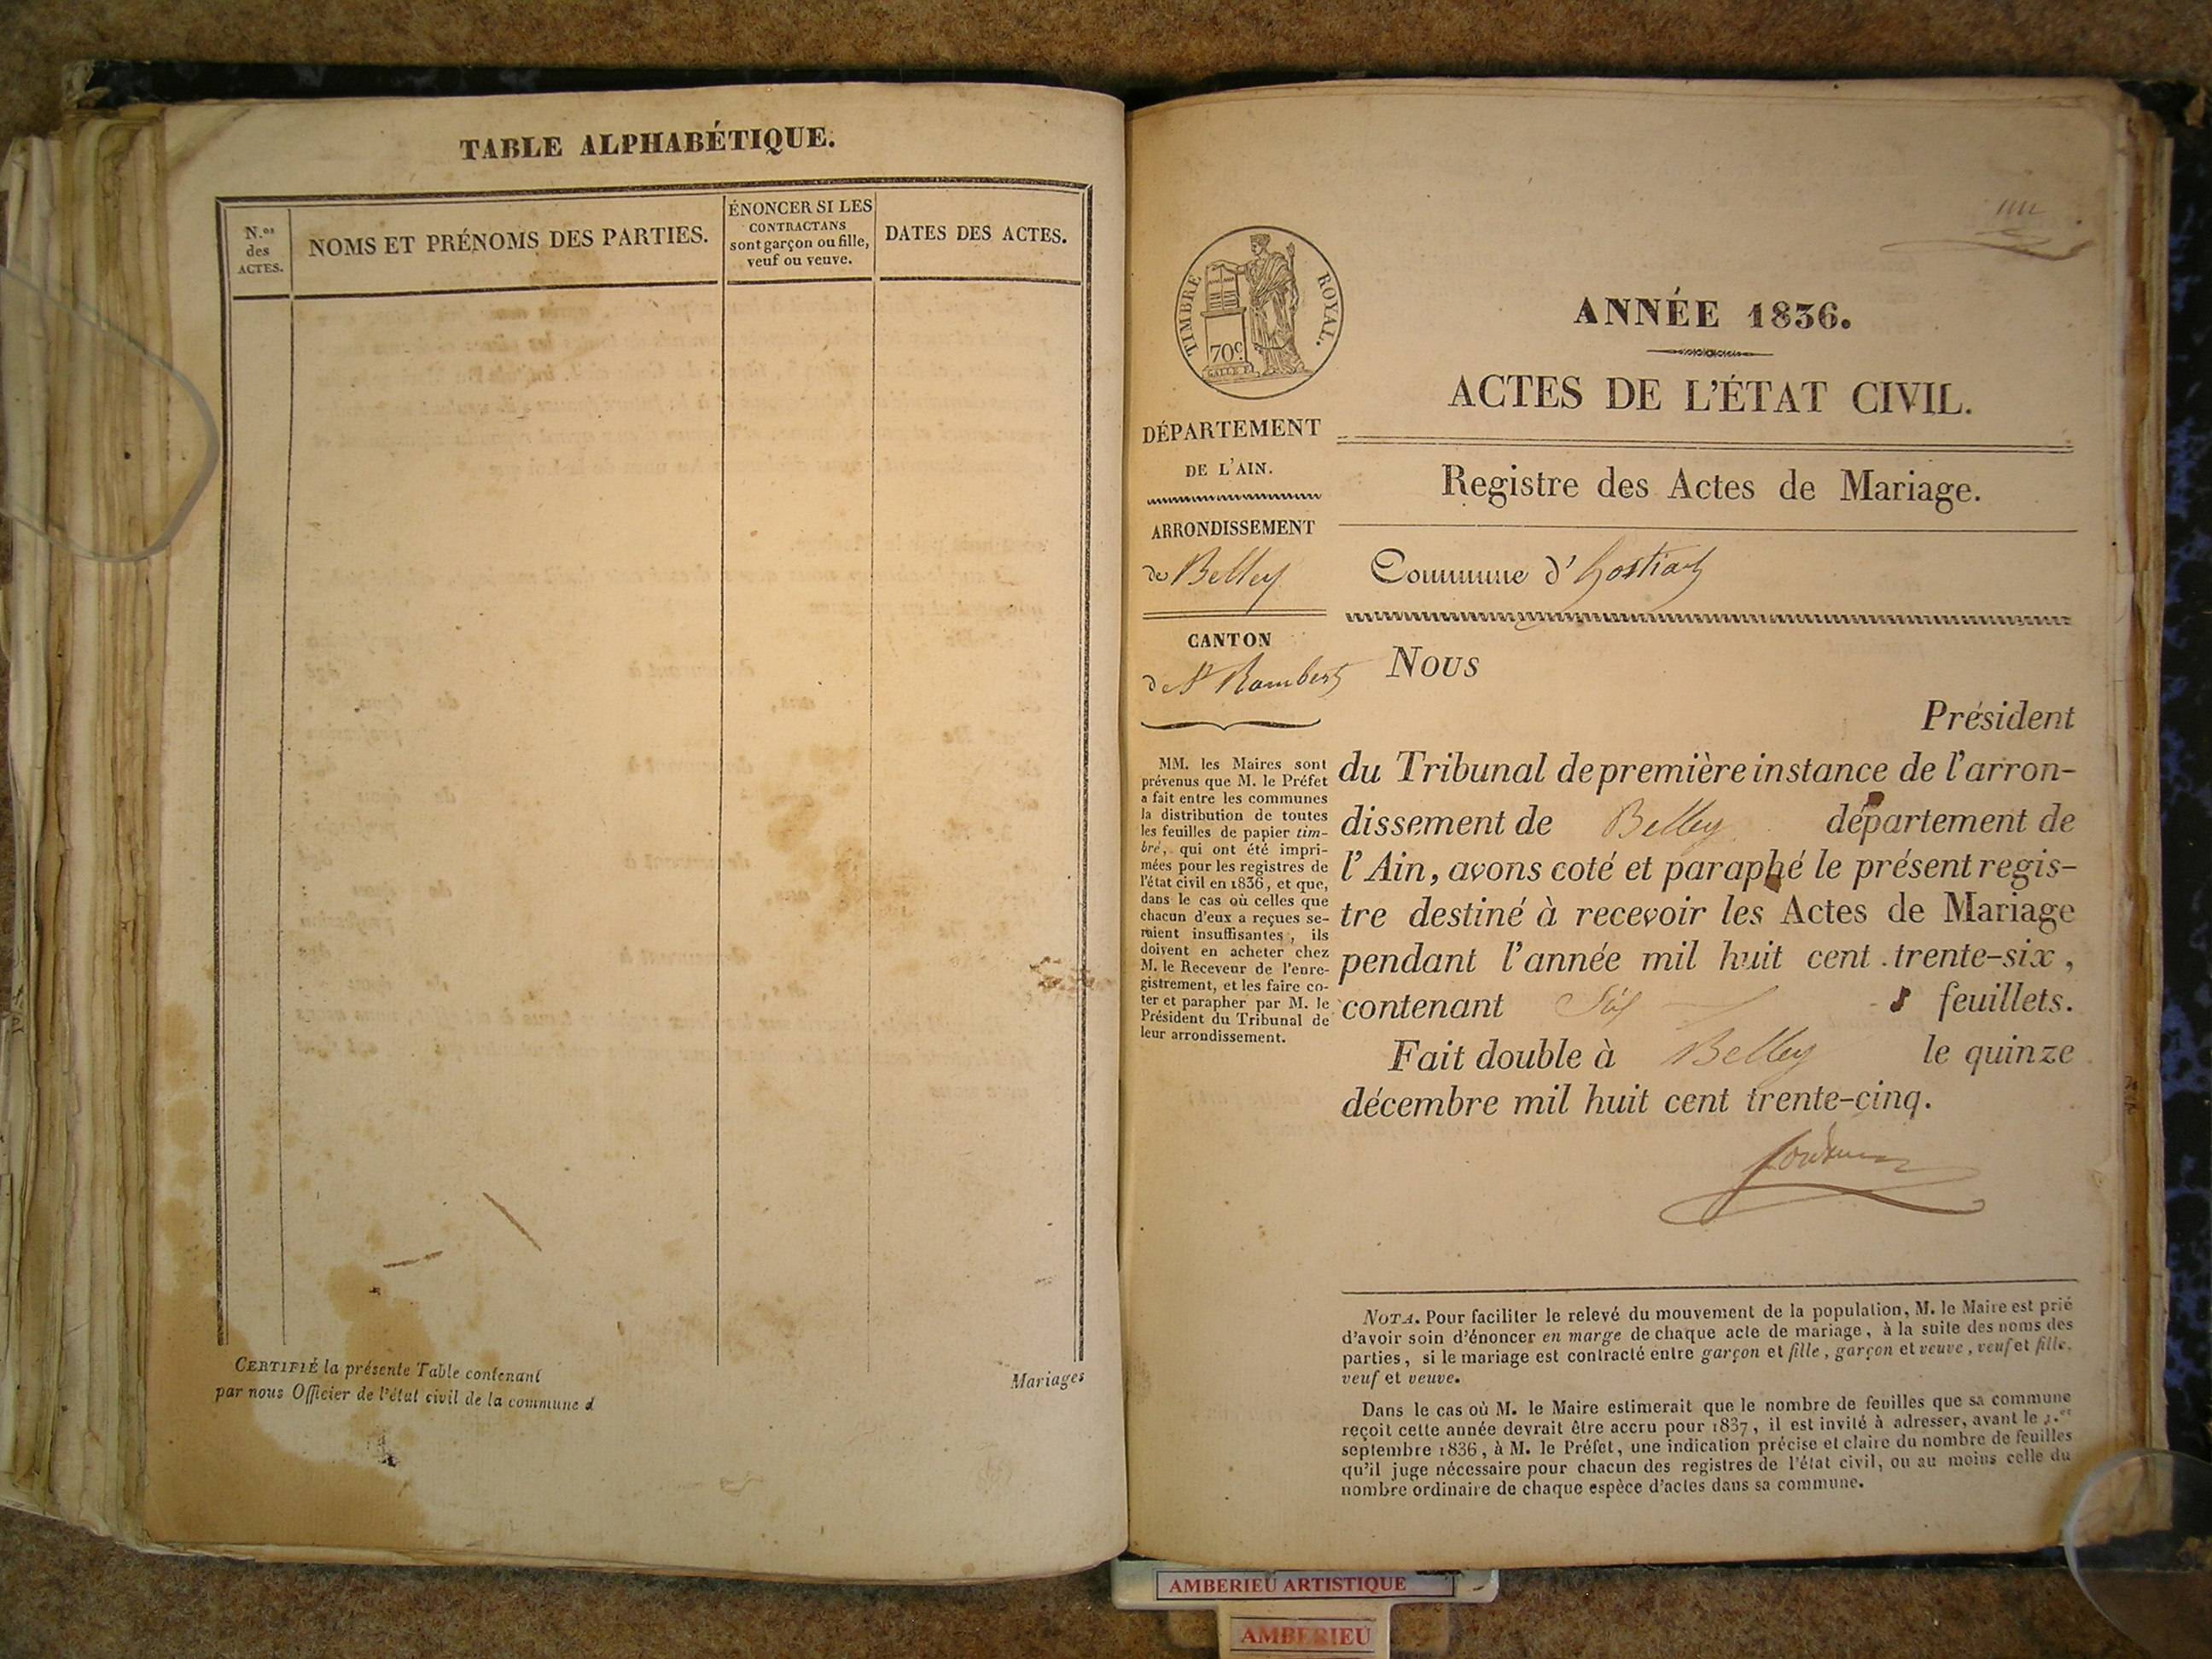 TABLE ALPHABÉTIQUE.
N.os
des
ACTES.
NOMS ET PRÉNOMS DES PARTIES.
ÉNONCER SI LES
CONTRACTANS
sont garçon ou fille,
veuf ou veuve.
DATES DES ACTES.
CERTIFIÉ la présente Table contenant
Mariages
par nous Officier de l'état civil de la commune d
TIMBRE ROYAL.
70c
ANNÉE 1836.
ACTES DE L'ÉTAT CIVIL.
DÉPARTEMENT
DE L'AIN.
Registre des Actes de Mariage.
ARRONDISSEMENT
de Belley
Commune d'hostiad
CANTON
de St Rambert
MM. les Maires sont
prévenus que M. le Préfet
a fait entre les communes
la distribution de toutes
les feuilles de papier tim-
bré, qui ont été impri-
mées pour les registres de
l'état civil en 1836, et que,
dans le cas où celles que
chacun d'eux a reçues se-
raient insuffisantes, ils
doivent en acheter chez
M. le Receveur de l'enre-
gistrement, et les faire co-
ter et parapher par M. le
Président du Tribunal de
leur arrondissement.
Nous
Président
du Tribunal de première instance de l'arron-
dissement de Belley département de
l'Ain, avons coté et paraphé le présent regis-
tre destiné à recevoir les Actes de Mariage
pendant l'année mil huit cent trente-six,
contenant Six feuillets.
Fait double à Belley le quinze
décembre mil huit cent trente-cinq.
NOTA. Pour faciliter le relevé du mouvement de la population, M. le Maire est prié
d'avoir soin d'énoncer en marge de chaque acte de mariage, à la suite des noms des
parties, si le mariage est contracté entre garçon et fille, garçon et veuve, veuf et fille,
veuf et veuve.
Dans le cas où M. le Maire estimerait que le nombre de feuilles que sa commune
reçoit cette année devrait être accru pour 1837, il est invité à adresser, avant le 1.er
septembre 1836, à M. le Préfet, une indication précise et claire du nombre de feuilles
qu'il juge nécessaire pour chacun des registres de l'état civil, ou au moins celle du
nombre ordinaire de chaque espèce d'actes dans sa commune.
AMBERIEU ARTISTIQUE
AMBERIEU